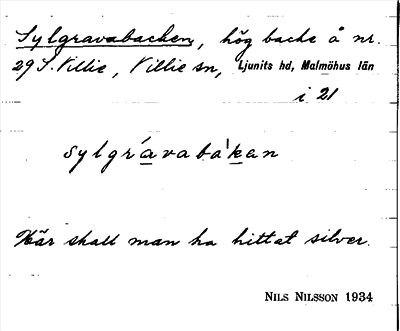 Sylgravabacken, hög backe å nr.
29 S. Villie, Villie sn, Ljunits hd, Malmöhus län
i 21
sylgrávabáˈkan
Här skall man ha hittat silver.
NILS NILSSON 1934